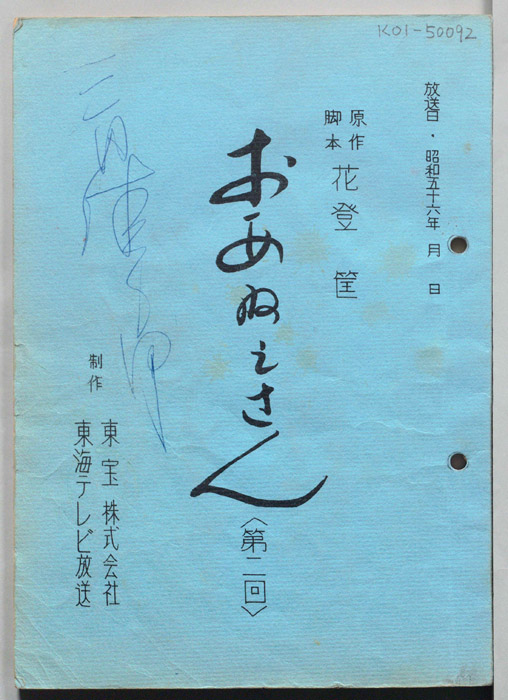 K01-50092
放送日・昭和五十六年 月 日
原作
脚本
花登筐
おあねえさん
〈第二回〉
制作
東宝株式会社
東海テレビ放送